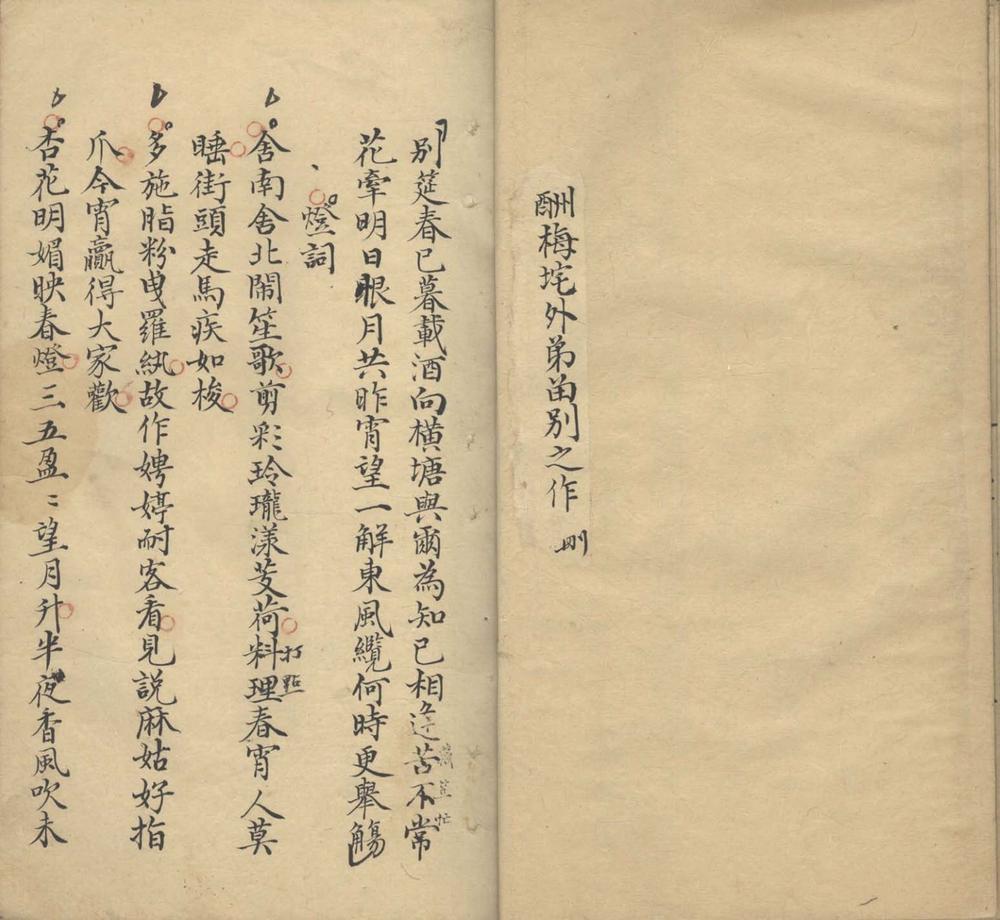 酬梅垞外弟留别之作 刪
别筵春已暮載酒向橫塘與爾為知已相逢苦不常
花牽明日眼月共昨宵望一解東風纜何時更舉觴
燈詞
舍南舍北鬧笙歌剪彩玲瓏漾芰荷料理春宵人莫
打點
睡街頭走馬疾如梭
多施脂粉曳羅紈故作娉婷耐客看見說麻姑好指
爪今宵贏得大家歡
杏花明媚映春燈三五盈〻望月升半夜香風吹未